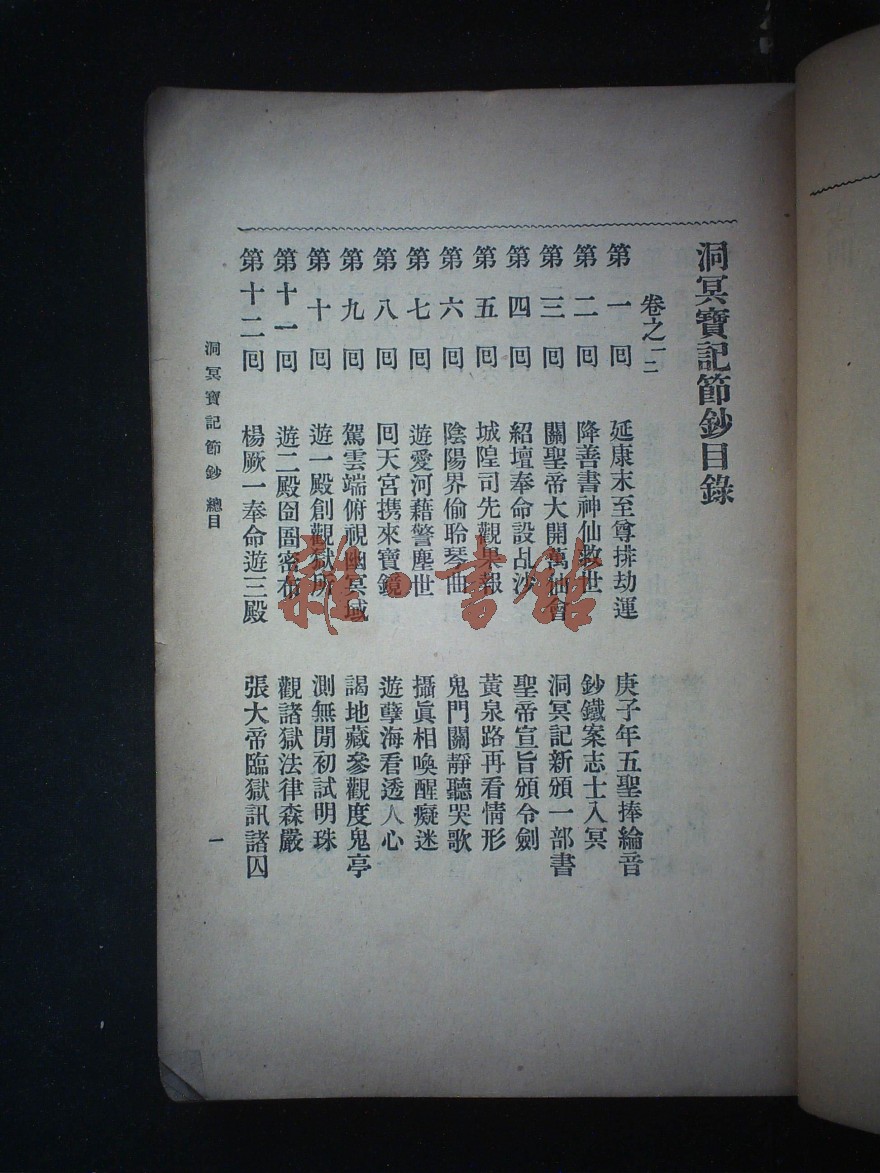 洞冥寶記節鈔目錄
卷之一二
第一回　延康末至尊排劫運　庚子年五聖捧綸音
第二回　降善書神仙救世　鈔鐵案志士入冥
第三回　關聖帝大開萬仙會　洞冥記新頒一部書
第四回　紹壇奉命設乩沙　聖帝宣旨頒令劍
第五回　城隍司先觀果報　黃泉路再看情形
第六回　陰陽界偷聆琴曲　鬼門關靜聽哭歌
第七回　遊愛河藉警塵世　攝眞相喚醒癡迷
第八回　回天宮携來寶鏡　遊孽海看透人心
第九回　駕雲端俯視幽冥域　謁地藏參觀度鬼亭
第十回　遊一殿創觀獄所　測無閒初試明珠
第十一回　遊二殿囹圄密布　觀諸獄法律森嚴
第十二回　楊厥一奉命遊三殿　張大帝臨獄訊諸囚
洞冥寶記節鈔　總目　一
雜·書館